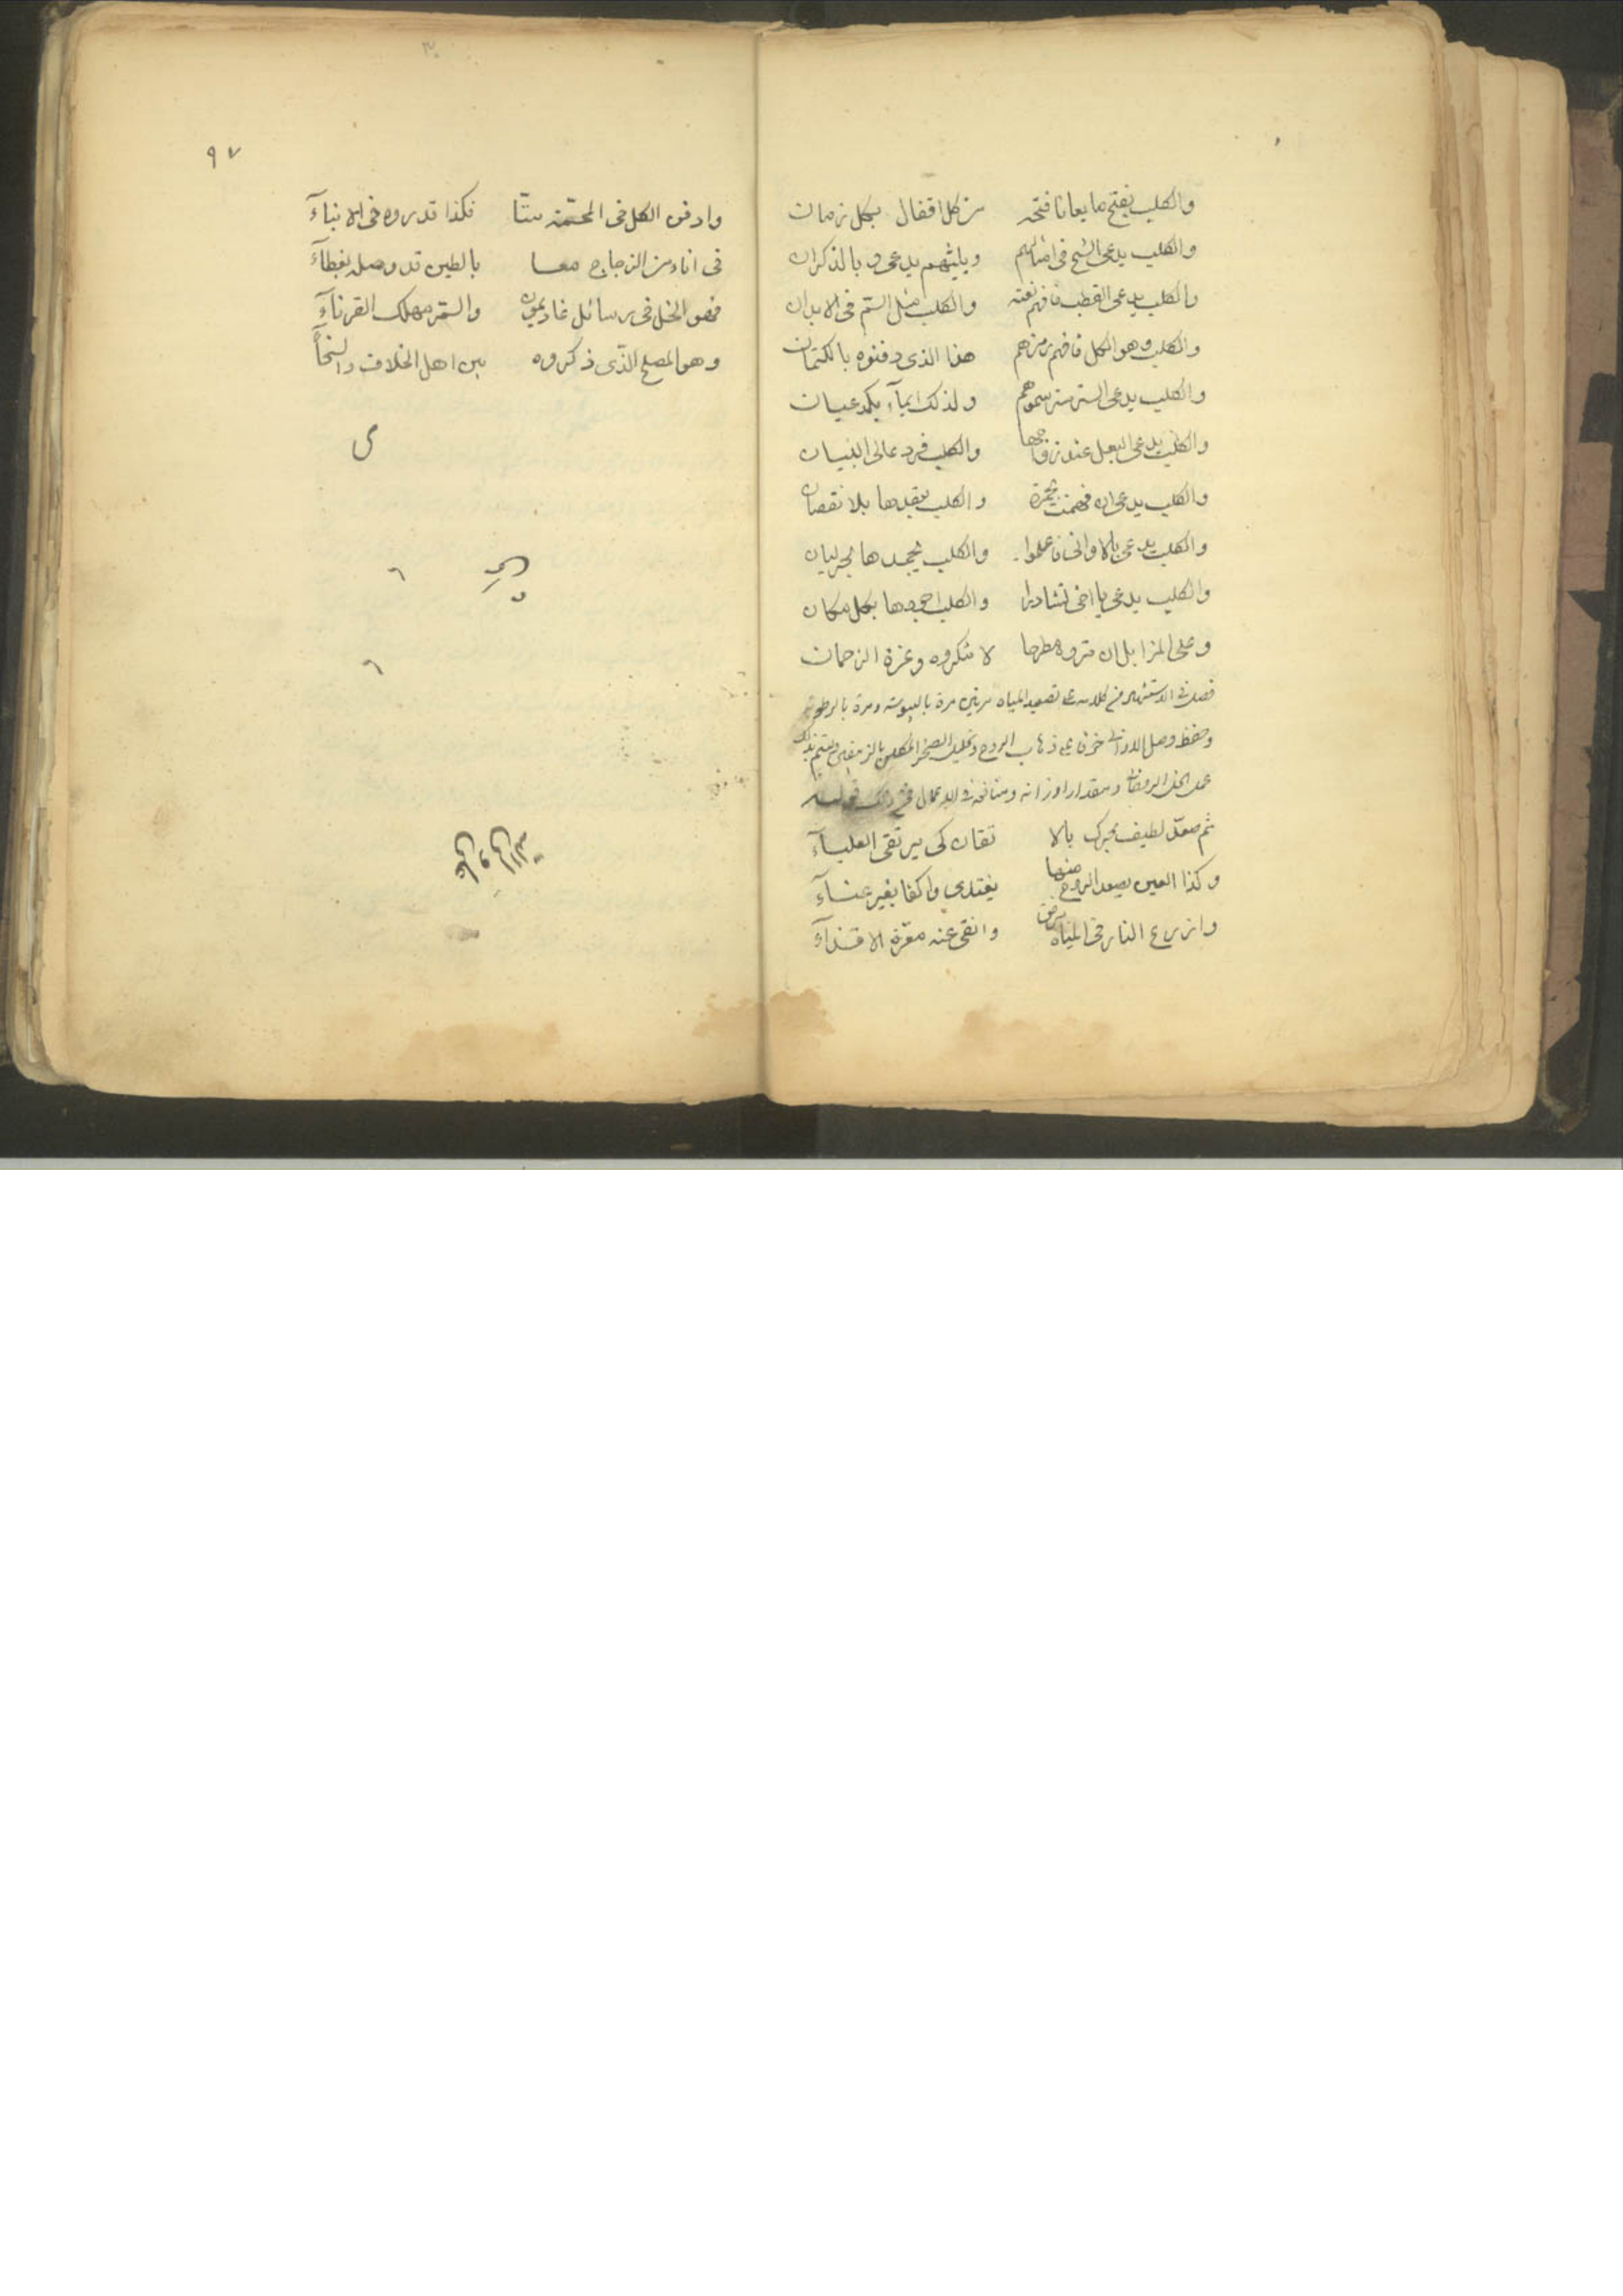 والكلب يفتح ما يعانا فتحه من كل اقفال بكل زمان
والكلب يدعى الشيخ فى امثالهم وبليثهم يدعى و بالذكران
والكلب يدعى القطب فافهم نعته والكلب مثل السّم فى الابدان
والكلب وهو الكل فافهم رمزهم هذا الذى دفنوه بالكتمان
والكلب يدعى الستر ستر سموهم ولذلك ايمآء بكمد عيان
والكلب يدعى البعل عند زواجها والكلب فرد عالى البنيان
والكلب يدعى ان فهمت بخمرة والكلب يعقدها بلا نقصان
والكلب يدعى بالا والخنا فاعلموا والكلب يجمدها لجريان
والكلب يدعى يا اخى نشادرا والكلب اجودها بكل مكان
وعلى المزابل ان تروه مطرحا لا تنكروه وعزة الرحمان
فصل فى الاستشهاد من كلامه على تصعيد المياه مرتين مرة باليبوسة ومرة بالرطوبة
وحفظ وصل الاوانى خوفا على ذهاب الروح وتحليل الصخر المكلس بالزيبقين
عمل الخل ومقدار اوزانه ومنافعه فى الاعمال فمن ذلك قوله
ثم صعّد لطيف بالا تقان كى يرتقى العليآء
وكذا العين يصعد الروح منها يغتدى واكفا بغير عنآء
وازرع النار فى المياه برفق وانقى عنه معرّة الاقذآء
٩٧
وادفن الكل فى المحمّة ستّا فكذا قد روه فى الانبآء
فى اناء من الزجاج معا بالطين قد وصل بغطآء
فهو الخل فى رسائل غاديمون والسّم مهلك القرنآء
وهو الملح الذّى ذكروه بين اهل الخلاف والسخآء